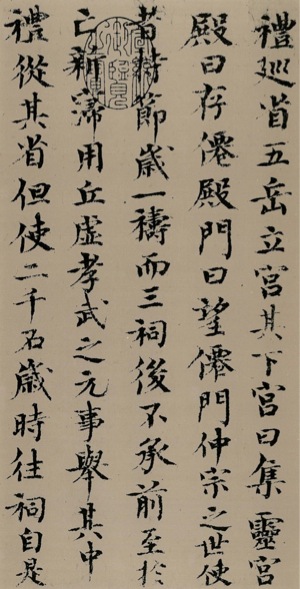 禮巡省五岳立宮其下宮曰集靈宮
殿曰存僊殿門曰望僊門仲宗之世使
者持節歲一禱而三祠後不承前至於
亡新寖用丘虛孝武之元事舉其中
禮從其省但使二千石歲時往祠自是